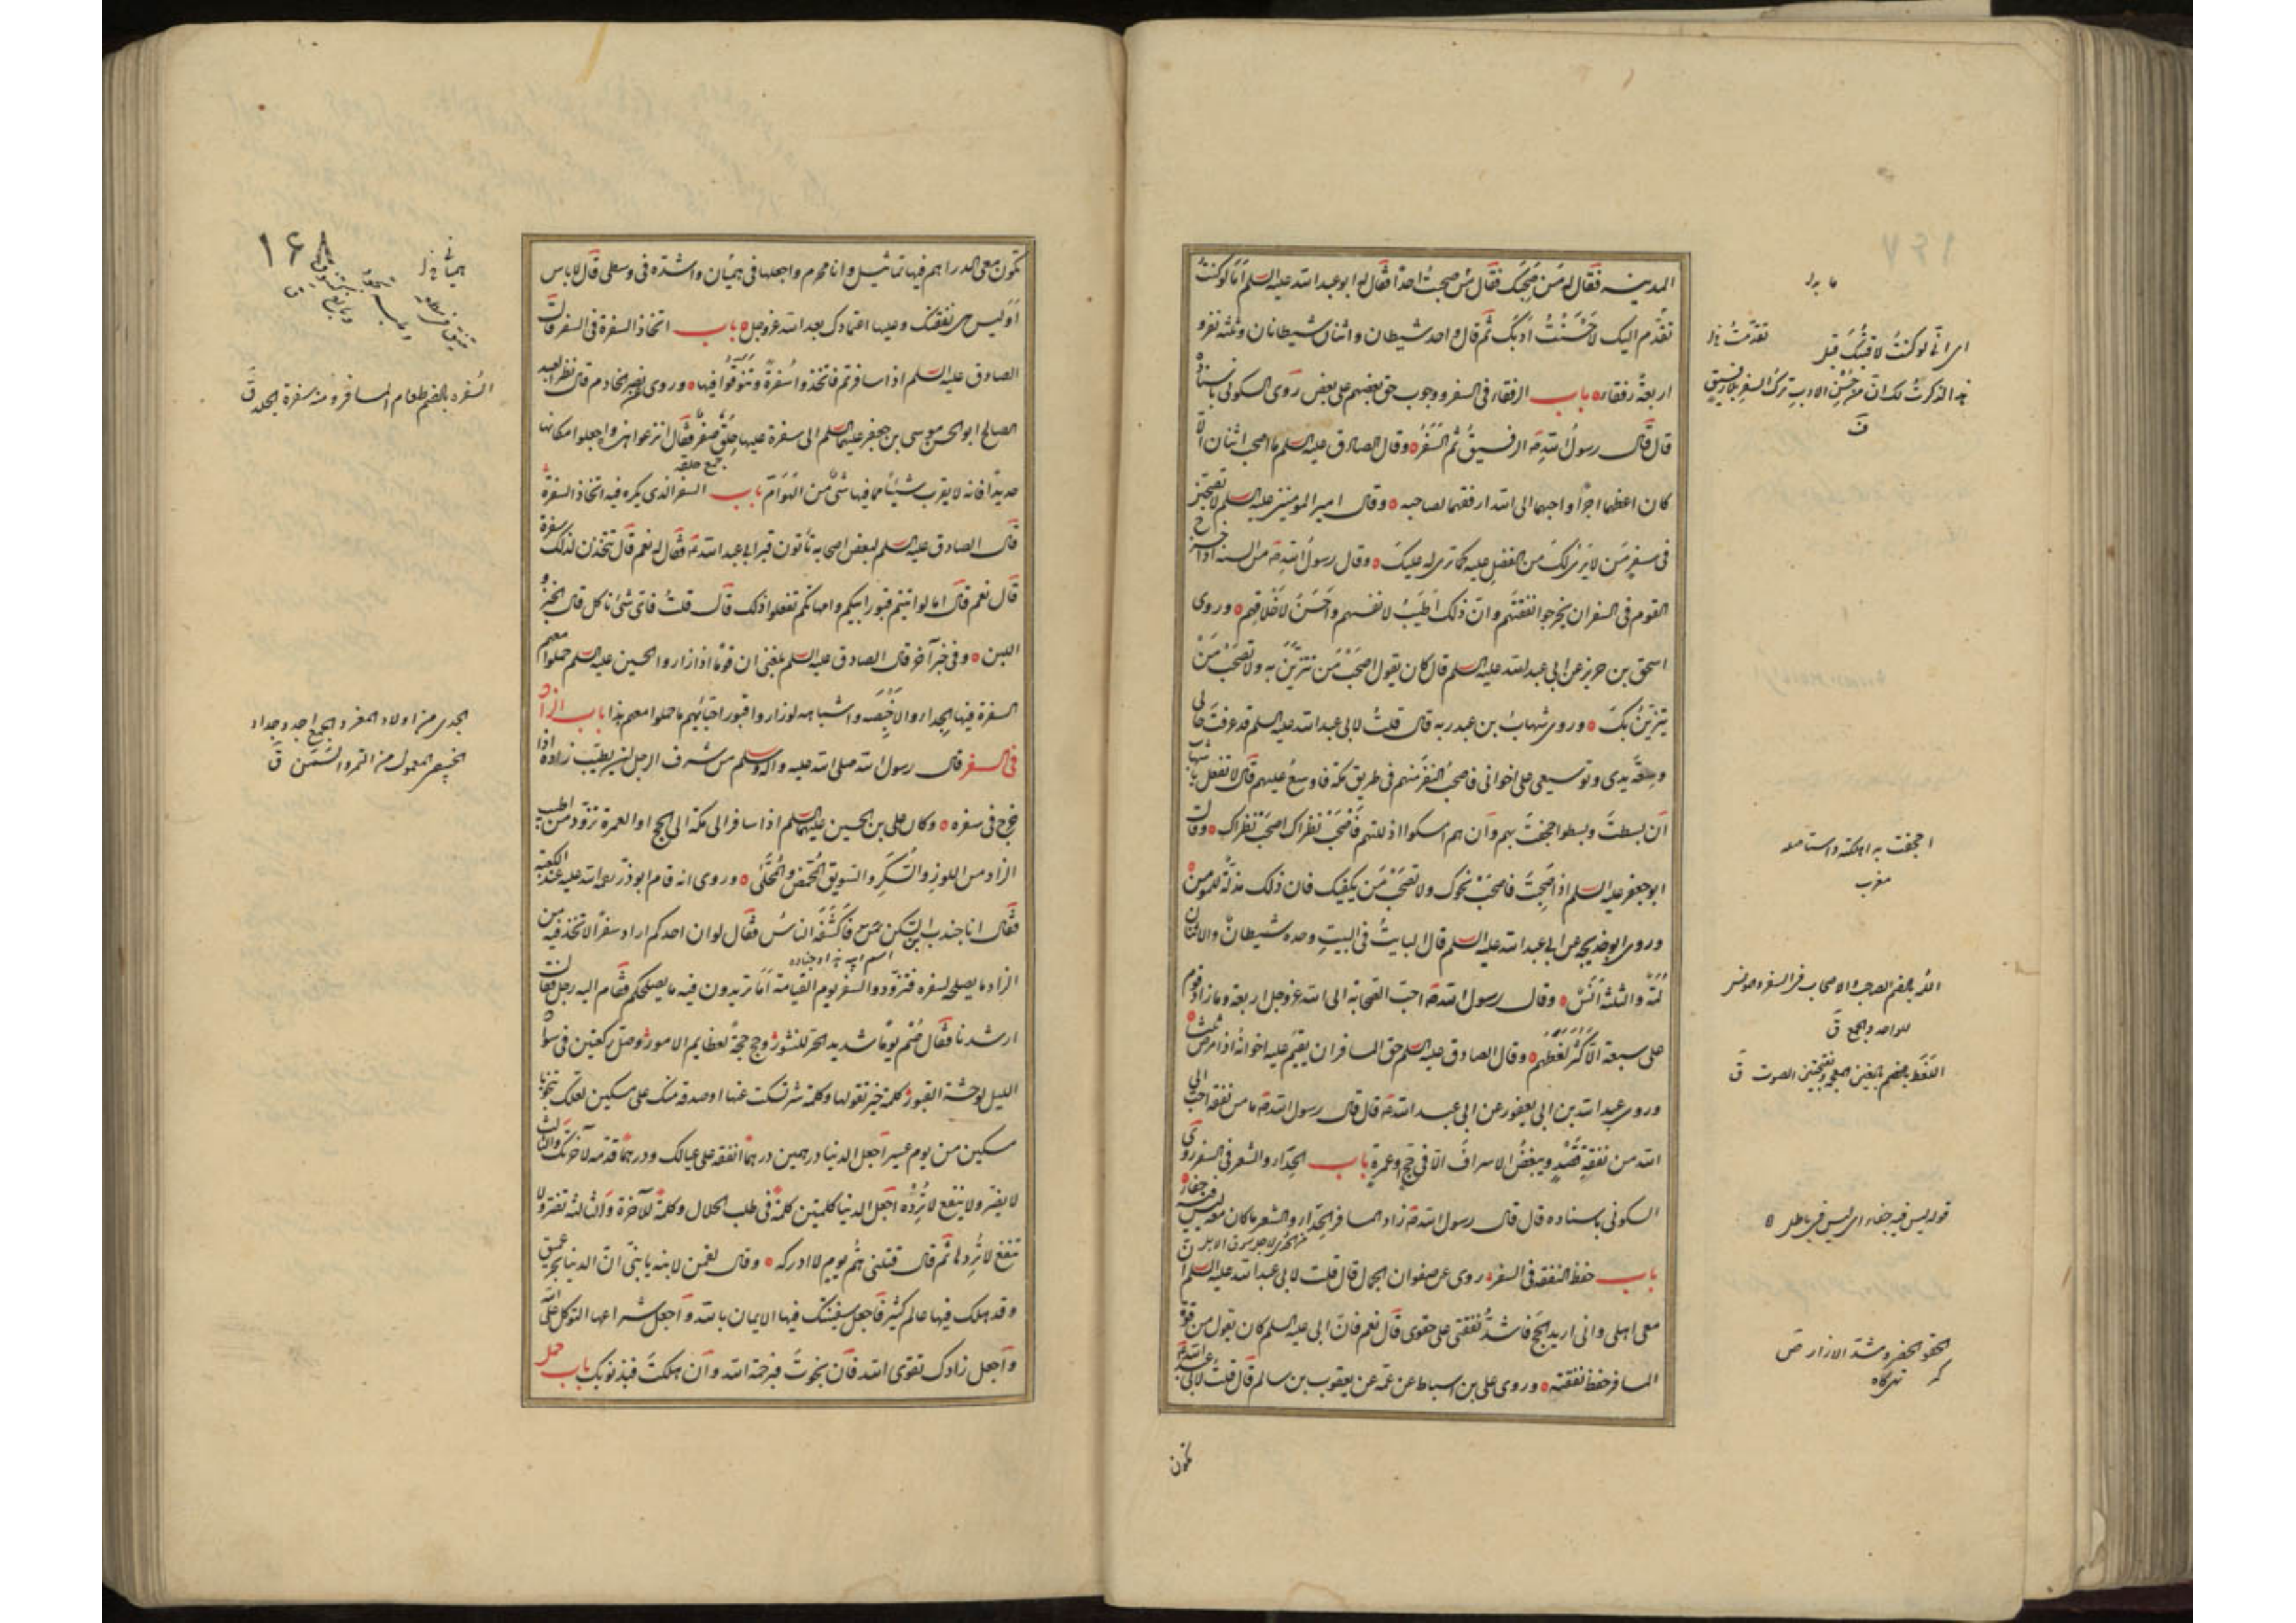 المدينه فقال له من صحبك فقال ما صحبت احدا فقال له ابو عبد الله عليه السلم اما لو كنت
تقدم اليك لاحسنت ادبك ثم قال واحد شيطان واثنان شيطانان وثلثه نفر و
اربعة رفقاء باب الرفقاء فى السفر ووجوب حق بعضهم على بعض روى السكونى باسناده
قال قال رسول الله ص الرفيق ثم السفر وقال الصادق عليه السلم ما اصحب اثنان الا
كان اعظمهما اجرا واحبهما الى الله ارفقهما لصاحبه وقال امير المومنين عليه السلم لا تصحبن
فى سفر من لا يرى لك من الفضل عليه كما ترى له عليك وقال رسول الله ص من السنة اذا خرج
القوم فى السفر ان يخرجوا نفقتهم وان ذلك اطيب لانفسهم واحسن لاخلاقهم وروى
اسحق بن حريز عن ابى عبد الله عليه السلم قال كان يقول اصحب من تتزين به ولا تصحب من
يتزين بك وروى شهاب بن عبد ربه قال قلت لابى عبد الله عليه السلم قد عرفت حالى
وسعة يدى وتوسيعى على اخوانى فاصحب النفر منهم فى طريق مكة فاوسع عليهم قال لا تفعل يا شهاب
ان بسطت وبسطوا اجحفت بهم وان هم امسكوا اذللتهم فاصحب نظراك اصحب نظراك وقال
ابو جعفر عليه السلم اذا صحبت فاصحب نحوك ولا تصحب من يكفيك فان ذلك مذلة للمومن
وروى ابو خديجه عن ابى عبد الله عليه السلم قال البايت فى البيت وحده شيطان والاثنان
لمة والثلثة انس وقال رسول الله ص احب الصحابة الى الله عز وجل اربعة وما زاد قوم
على سبعة الا كثر لغطهم وقال الصادق عليه السلم حق المسافر ان يقيم عليه اخوانه اذا مرض ثلثا
وروى عبد الله بن ابى يعفور عن ابى عبد الله ع قال قال رسول الله ص ما من نفقة احب الى
الله من نفقة قصد ويبغض الاسراف الا فى حج وعمرة باب الحداء والشعر فى السفر روى
السكونى باسناده قال قال رسول الله ص زاد المسافر الحداء والشعر ما كان معه ليس فيه جفاء
باب حفظ النفقه فى السفر روى عن صفوان الجمال قال قلت لابى عبد الله عليه السلم ان
معى اهلى وانى اريد الحج فاشد نفقتى على حقوى قال نعم فان ابى عليه السلم كان يقول من قوة
المسافر حفظ نفقته وروى على بن اسباط عن عمه عن يعقوب بن سالم قال قلت لابى عبد الله ع
تكون
اى انى لو كنت لاقيتك قبل
تقدمت
ق
اجحفت به اهلكته واستاصله
مغرب
اللمه بالضم الصاحب والاصحاب فى السفر والمونس
للواحد والجمع ق
قوله ليس فيه جفاء اى ليس فيه باطل
الحقو الخصر ومشد الازار ص
تكون معى الدراهم فيها تماثيل وانا محرم واجعلها فى هميان واشده فى وسطى قال لا باس
اوليس هى نفقتك وعليها اعتمادك بعد الله عز وجل باب اتخاذ السفرة فى السفر قال
الصادق عليه السلم اذا سافرتم فاتخذوا سفرة وتنوقوا فيها وروى نصر الخادم قال نظر العبد
الصالح ابو الحسن موسى بن جعفر عليهما السلم الى سفرة عليها حلق صفر فقال انزعوا هذه واجعلوا مكانها
جمع حلقه
حديدا فانه لا يقرب شيئا مما فيها شئ من الهوام باب السفر الذى يكره فيه اتخاذ السفرة
قال الصادق عليه السلم لبعض اصحابه تأتون قبر ابى عبد الله ع فقال له نعم قال تتخذون لذلك سفرة
قال نعم قال اما لو اتيتم قبور ابائكم وامهاتكم لم تفعلوا ذلك قال قلت فاى شئ ناكل قال الخبز و
اللبن وفى خبر آخر قال الصادق عليه السلم بلغنى ان قوما اذا زاروا الحسين عليه السلم حملوا معهم
السفرة فيها الجداء والاخبصه واشباهه لو زاروا قبور احبائهم ما حملوا معهم هذا باب الزاد
فى السفر قال رسول الله صلى الله عليه واله وسلم من شرف الرجل ان يطيب زاده اذا
خرج فى سفره وكان على بن الحسين عليهما السلم اذا سافر الى مكة الى الحج او العمرة تزود من اطيب
الزاد من اللوز والسكر والسويق المحمض والمحلى وروى انه قام ابو ذر رحمة الله عليه عند الكعبة
فقال انا جندب بن السكن فاكتنفه الناس فقال لو ان احدكم اراد سفرا لاتخذ فيه من
الزاد ما يصلحه لسفره فتزودوا لسفر يوم القيامة اما تريدون فيه ما يصلحكم فقام اليه رجل فقال
ارشدنا فقال صم يوما شديد الحر للنشور وحج حجة لعظايم الامور وصل ركعتين فى سواد
الليل لوحشة القبور كلمة خير تقولها وكلمة شر تسكت عنها او صدقة منك على مسكين لعلك تنجو بها يا
مسكين من يوم عسير اجعل الدنيا درهمين درهما انفقته على عيالك ودرهما قدمته لآخرتك والثالث
لا يضر ولا ينفع لا ترده اجعل الدنيا كلمتين كلمة فى طلب الحلال وكلمة للآخرة والثالثة تضر ولا
تنفع لا تردها ثم قال قتلنى هم يوم لا ادركه وقال لقمن لابنه يا بنى ان الدنيا بحر عميق
وقد هلك فيها عالم كثير فاجعل سفينتك فيها الايمان بالله واجعل شراعها التوكل على الله
واجعل زادك تقوى الله فان نجوت فبرحمة الله وان هلكت فبذنوبك باب حمل
١٦٨
السفره بالضم طعام المسافر ومنه سفرة الجلد ق
الجدى من اولاد المعز والجمع اجد وجداء
الخبيص المعمول من التمر والسمن ق